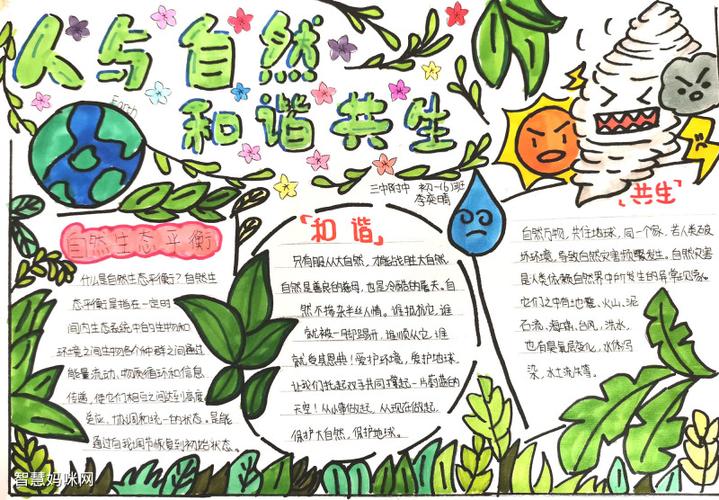 人与自然
和谐共生
Earth
三中附中 初一(6)班
李奕晴
自然生态平衡
什么是自然生态平衡?自然生
态平衡是指在一定时
间内生态系统中的生物和
环境之间、生物各个种群之间通过
能量流动、物质循环和信息
传递,使它们相互之间达到高度
适应、协调和统一的状态。是能
通过自我调节恢复到初始状态。
「和谐」
只有服从大自然,才能战胜大自然。
自然是善良的慈母,也是冷酷的屠夫。自
然不掺杂半丝人情。谁抵抗它,谁
就被一脚踢开,谁顺从它,谁
就受其恩典!爱护环境,爱护地球。
让我们托起双手共同撑起一片蔚蓝的
天空!从小事做起,从现在做起,
保护大自然,保护地球。
「共生」
自然万物,共住地球,同一个家,若人类破
坏环境,导致自然灾害频繁发生。自然灾害
是人类依赖自然界中所发生的异常现象。
它们之中有:地震、火山、泥
石流、海啸、台风、洪水,
也有臭氧层变化,水体污
染,水土流失等。
智慧妈咪网